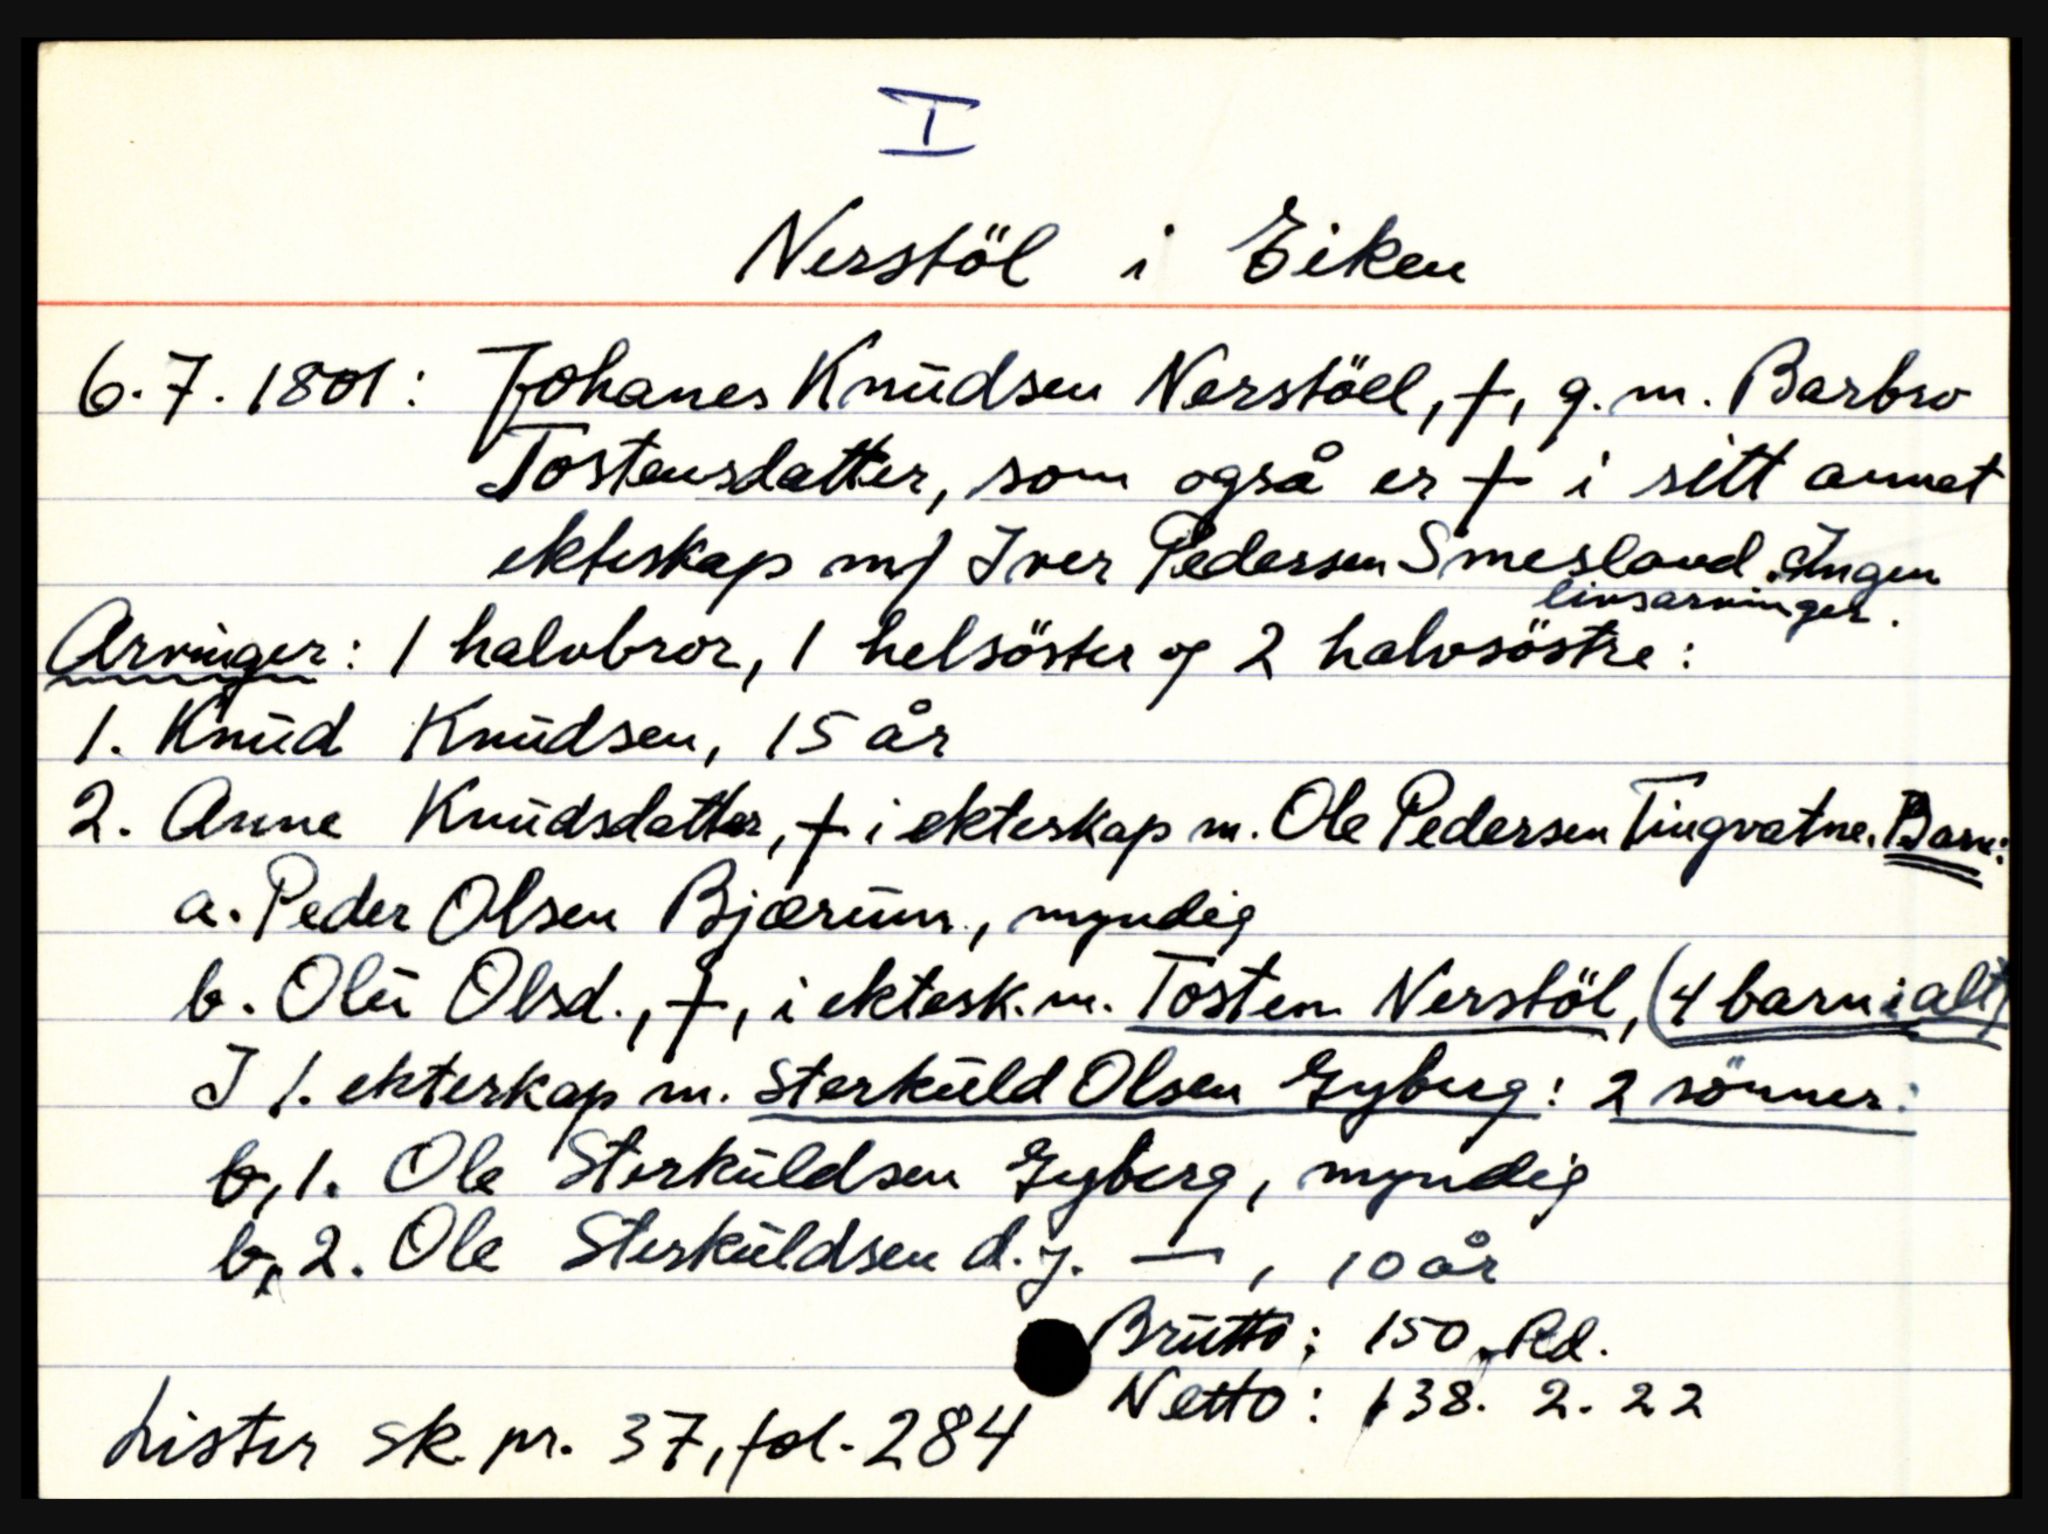 I
Nerstöl i Eiken
6.7.1801: Johanes Knudsen Nerstöel, †, g.m. Barbro
Tostensdatter, som også er † i sitt annet
ekteskap m/ Iver Pedersen Smesland. Ingen
livsarvinger.
Arvinger: 1 halvbror, 1 helsöster og 2 halvsöstre:
1. Knud Knudsen, 15 år
2. Anne Knudsdatter, † i ekteskap m. Ole Pedersen Tingvatne. Barn:
a. Peder Olsen Bjærum, myndig
b. Olu Olsd., †, i ektesk. m. Tosten Nerstöl, (4 barn i alt)
I 1. ekteskap m. Sterkuld Olsen Gyberg: 2 sönner:
b,1. Ole Sterkuldsen Gyberg, myndig
b,2. Ole Sterkuldsen d.y. —, 10 år
Brutto: 150. Rd.
Netto: 138. 2. 22
Lister sk. pr. 37, fol. 284